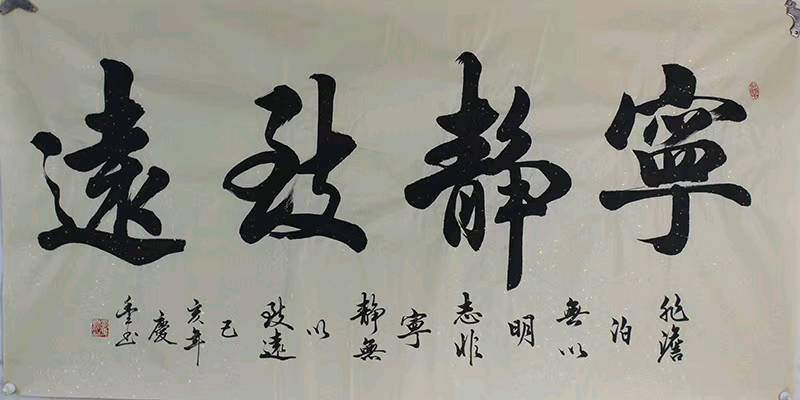 寧静致遠
非澹泊無以明志非寧静無以致遠己亥年慶